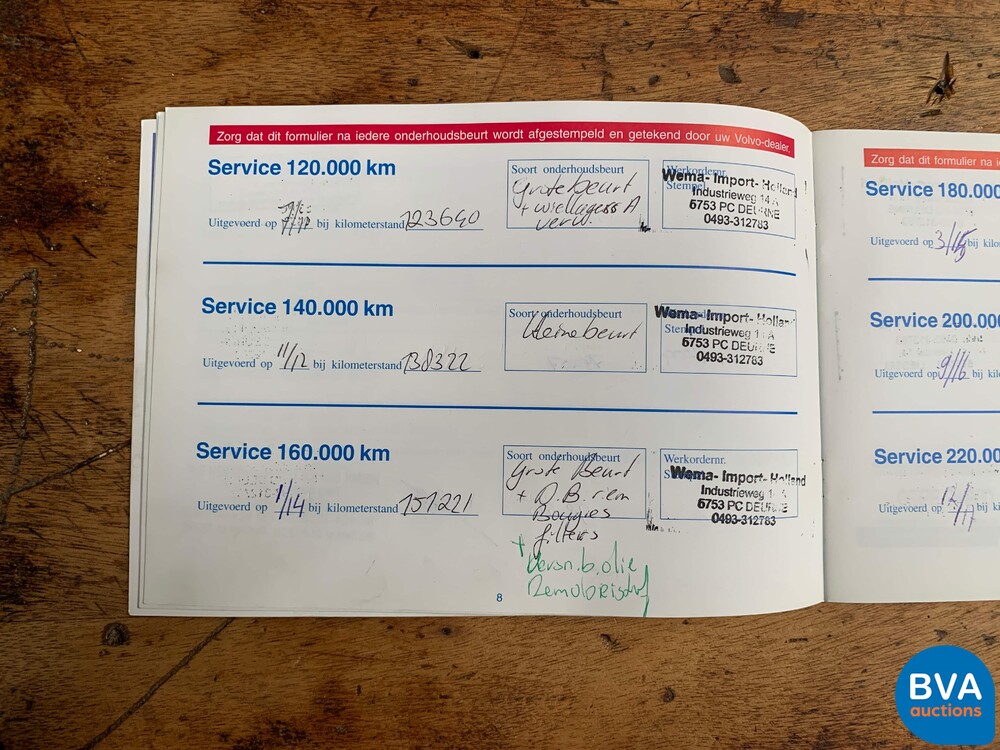 Zorg dat dit formulier na iedere onderhoudsbeurt wordt afgestempeld en getekend door uw Volvo-dealer.
Service 120.000 km
Uitgevoerd op bij kilometerstand 123640
Soort onderhoudsbeurt
Grote beurt
+ wiellagers A
verv
Werkordernr.
Stempel
Wema- Import- Holland
Industrieweg 14 A
5753 PC DEURNE
0493-312783
Service 140.000 km
Uitgevoerd op 11/12 bij kilometerstand 138322
Soort onderhoudsbeurt
Kleine beurt
Wema- Import- Holland
Industrieweg 1 A
5753 PC DEURNE
0493-312783
Service 160.000 km
Uitgevoerd op 1/14 bij kilometerstand 151221
Soort onderhoudsbeurt
Grote Beurt
+ D.B. rem
Bougies
filters
+
Versn.b.olie
Remvloeistof
Werkordernr.
Wema- Import- Holland
Industrieweg 1 A
5753 PC DEURNE
0493-312783
8
Zorg dat dit formulier na i
Service 180.00
Uitgevoerd op 3/15 bij kilo
Service 200.00
Uitgevoerd op 9/16 bij kil
Service 220.00
Uitgevoerd op 12/17 bij ki
BVA
auctions